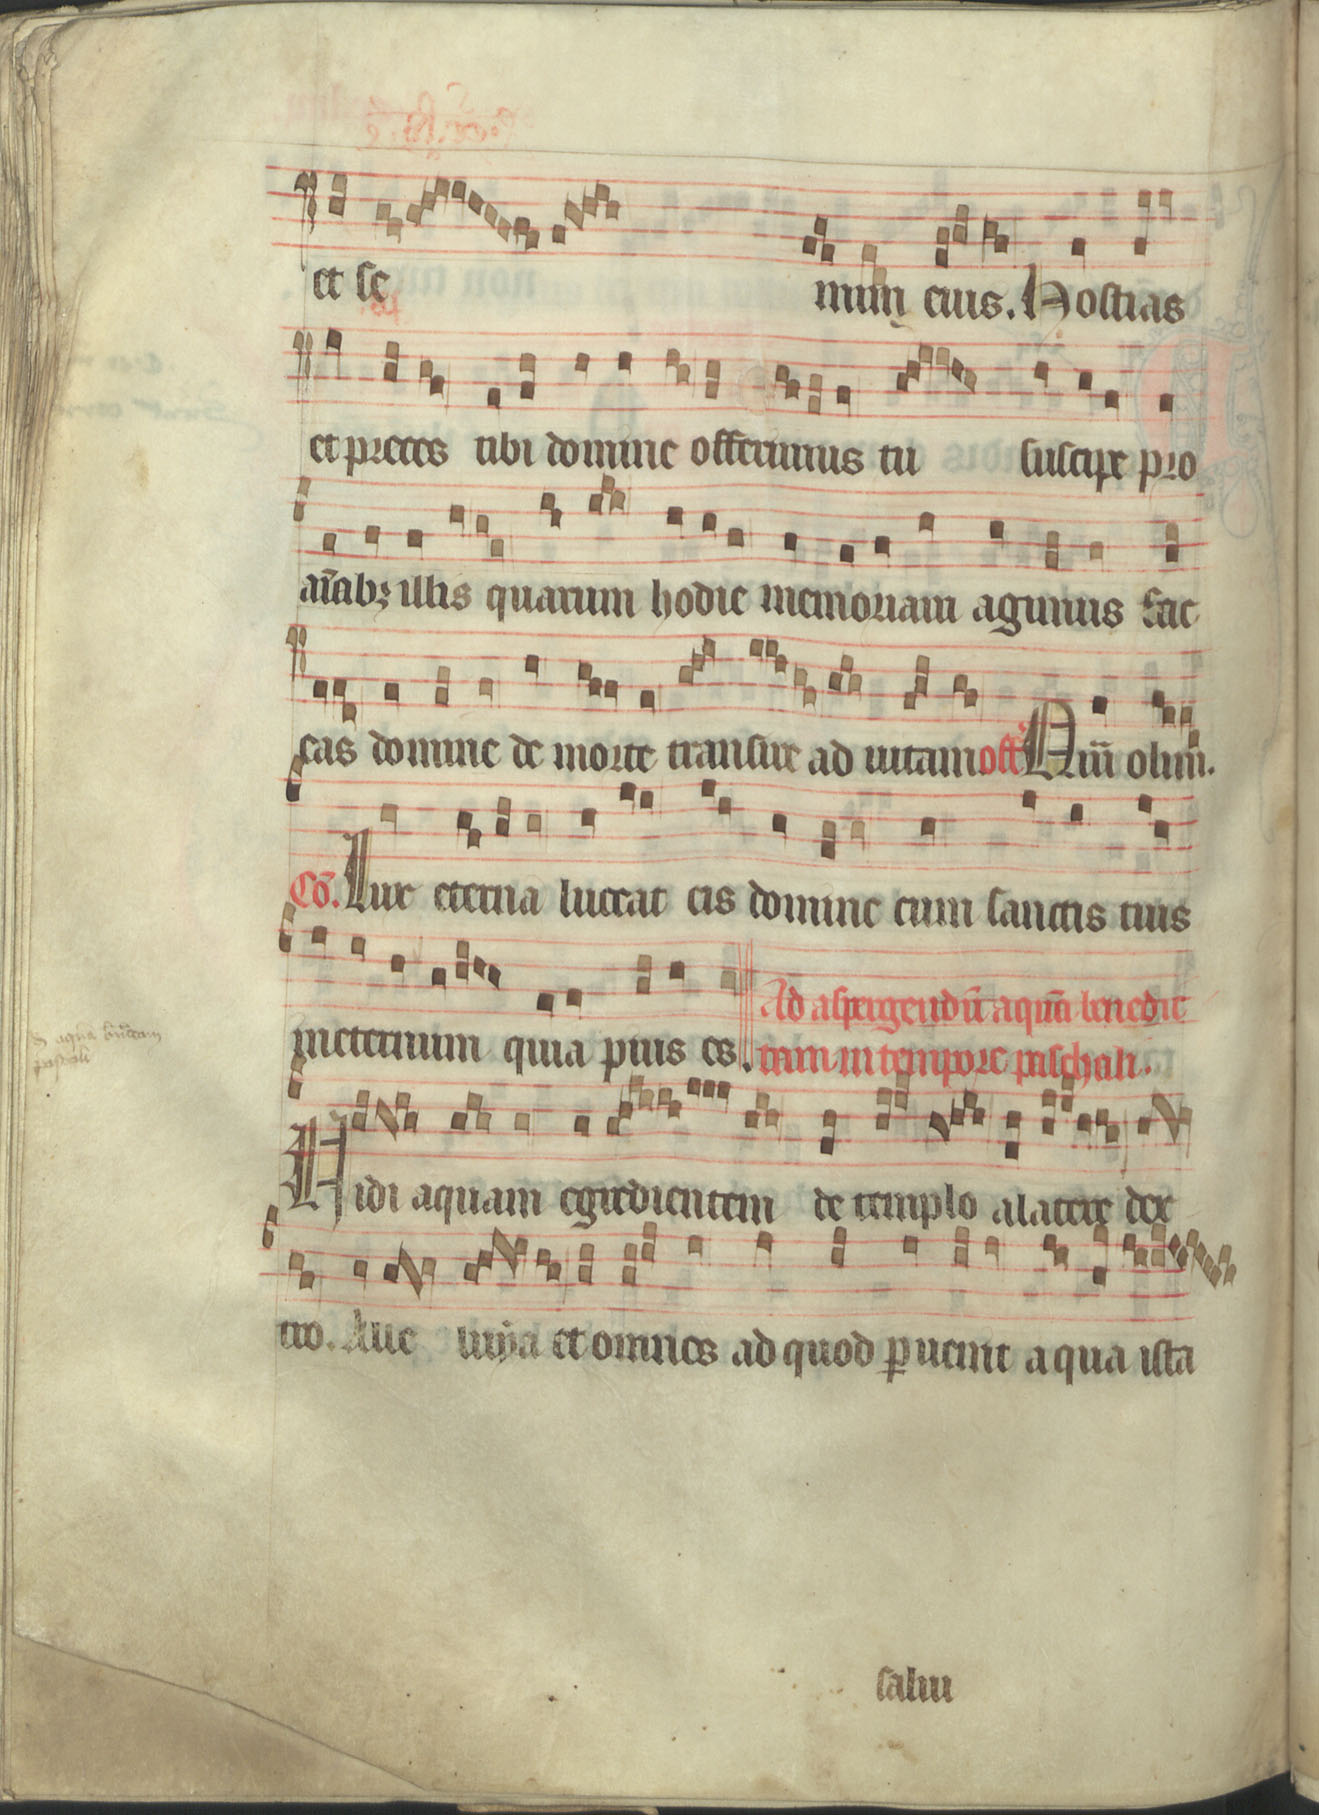 et se mini eius. Hostias
et preces tibi domine offerimus tu suscipe pro
aīabꝫ illis quarum hodie memoriam agimus fac
eas domine de morte transire ad uitam off Qm̄ olim.
Cō. Lux eterna luceat eis domine cum sanctis tuis
ineternum quia pius es.
Ad aspergendū aquā benedic
tam in tempore paschali.
Vidi aquam egredientem de templo alatere dex
tro. Alle luya et omnes ad quod ꝑuenit aqua ista
saluı